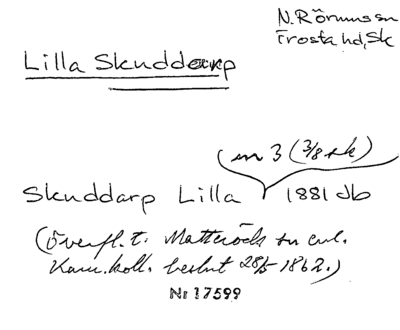 N. Rörum sn
Frosta hd, Sk
Lilla Skuddarp
(m 3 (3/8 sk)
Skuddarp Lilla 1881 Jb
(överfl. t. Matteröds sn enl.
Kam. koll. beslut 28/5 1862.)
Nr 17599